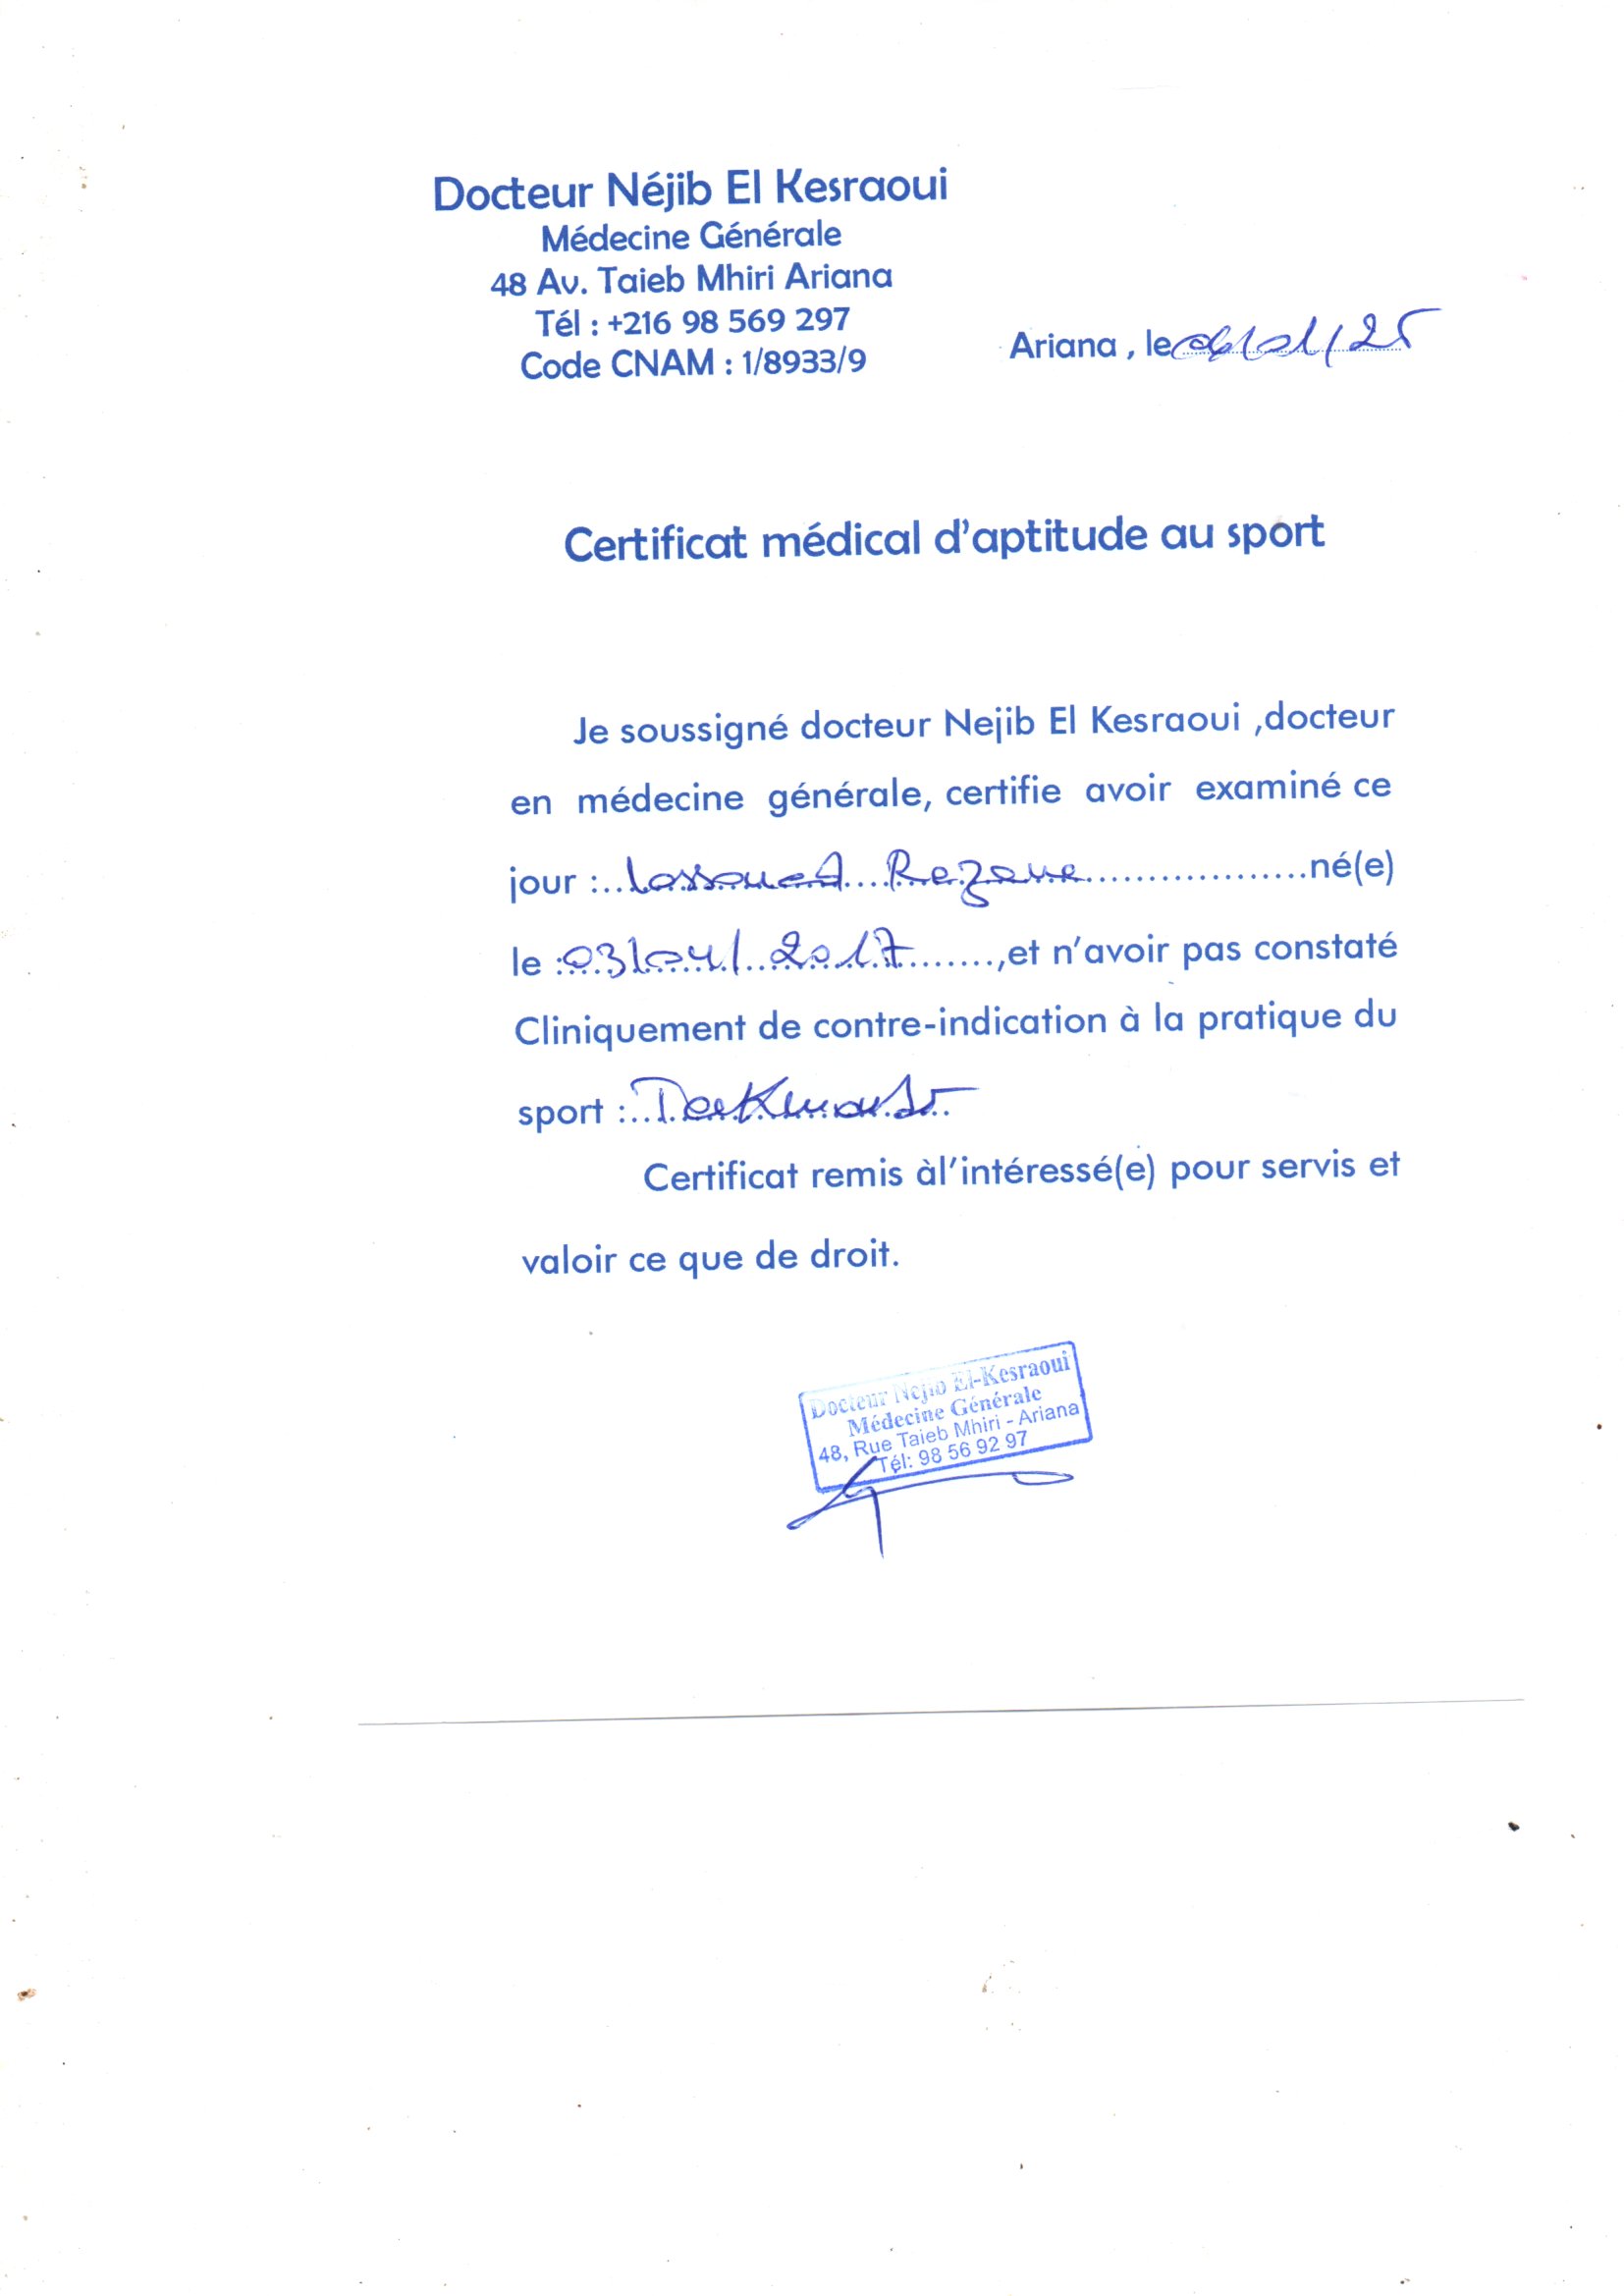 Docteur Néjib El Kesraoui
Médecine Générale
48 Av. Taieb Mhiri Ariana
Tél : +216 98 569 297
Code CNAM : 1/8933/9
Ariana , le 06/01/25
Certificat médical d'aptitude au sport
Je soussigné docteur Nejib El Kesraoui ,docteur
en médecine générale, certifie avoir examiné ce
jour :.. Lassoued Rezane ..................né(e)
le : 03/04/2017 .......,et n'avoir pas constaté
Cliniquement de contre-indication à la pratique du
sport :..
Certificat remis àl'intéressé(e) pour servis et
valoir ce que de droit.
Docteur Nejib El-Kesraoui
Médecine Générale
48, Rue Taieb Mhiri - Ariana
Tél: 98 56 92 97